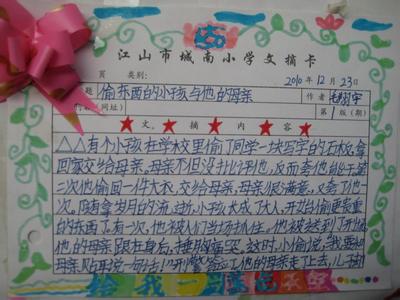 江山市城南小学文摘卡
页 类别: 2010年12月23日
题 偷东西的小孩与他的母亲 作者
(网址) 第1版(期)
★文★摘★内★容★
△△有个小孩在学校里偷了同学一块写字的石板,拿
回家交给母亲,母亲不但没批评他,反而夸他能干,第
二次他偷回一件大衣,交给母亲,母亲很满意,又夸了他一
次。随着岁月的流逝,小孩长成了大人,开始偷更贵重
的东西了。有一次,他被人们当场抓住,他被送到了
他的母亲跟在身后,捶胸痛哭,这时,小偷说,我要和
母亲贴耳说一句话!"刑警答应了他的母亲走了上去,儿子
给我一